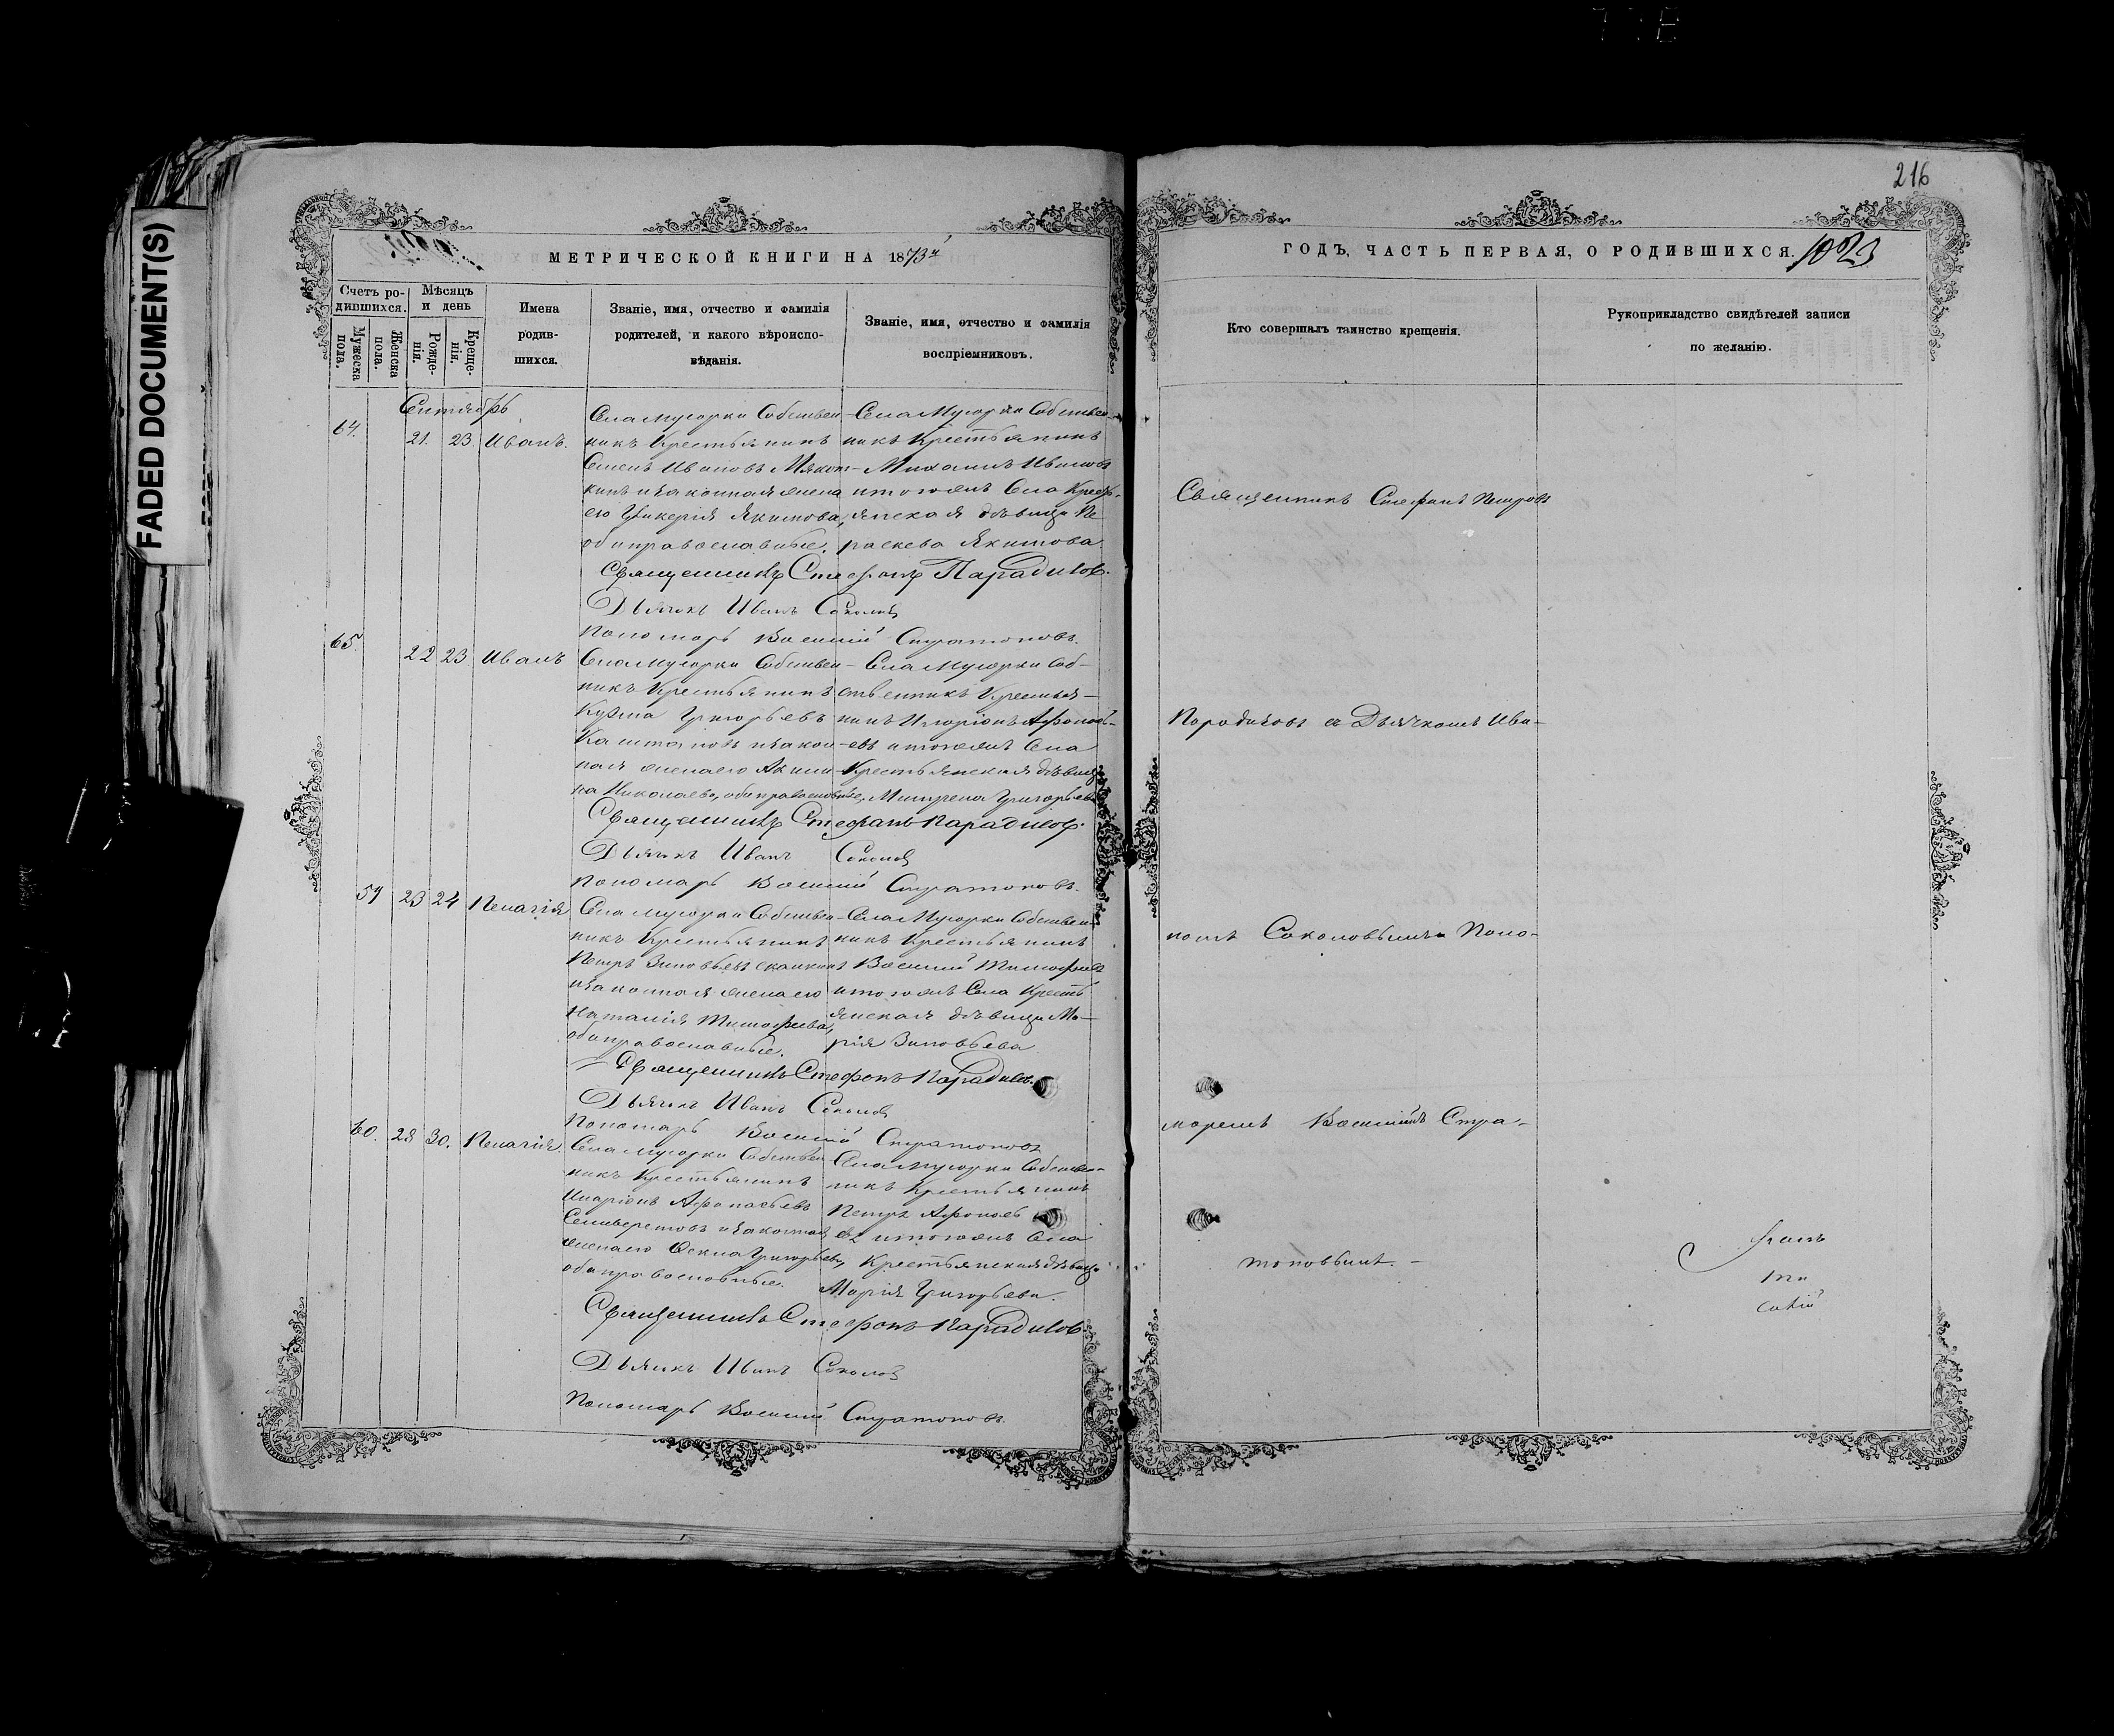 FADED DOCUMENT(S)
216
МЕТРИЧЕСКОЙ КНИГИ НА 1873й
ГОДЪ, ЧАСТЬ ПЕРВАЯ, О РОДИВШИХСЯ.
Счетъ ро-
дившихся.
Мужеска
пола.
Женска
пола.
Мѣсяцъ
и день
Рожде-
нія.
Креще-
нія.
Имена
родив-
шихся.
Званіе, имя, отчество и фамилія
родителей, и какого вѣроиспо-
вѣданія.
Званіе, имя, отчество и фамилія
воспріемниковъ.
Кто совершалъ таинство крещенія.
Рукоприкладство свидѣтелей записи
по желанію.
Сентябрь
64. 21. 23. Иванъ.
Села Мусорки Собствен-
никъ Крестьянинъ
Семенъ Ивановъ
кинъ и законная жена
его Гликерія Якимова,
оба православные.
Села Мусорки Собствен-
никъ Крестьянинъ
Михаилъ Ивановъ
и тогожъ Села Кресть-
янская дѣвица Па
раскева Якимова
Священникъ Стефанъ Парадизов.
Дьячекъ Иванъ Соколов
Пономарь Василий Стратоновъ.
65. 22 23 Иванъ
Села Мусорки Собствен-
никъ Крестьянинъ
Козма Григорьевъ
Каштановъ и закон-
ная жена его Акили-
на Николаева, оба православные,
Села Мусорки Соб-
ственникъ Крестья-
нинъ Иларіонъ Афонась-
евъ и тогожъ Села
Крестьянская дѣвица
Матрена Григорьева
Священникъ Стефанъ Парадизов.
Дьячекъ Иванъ Соколов
Пономарь Василий Стратоновъ.
59 23 24 Пелагія
Села Мусорки Собствен-
никъ Крестьянинъ
Петръ Зиновьевъ
и законная жена его
Наталія Тимофеева,
оба православные.
Села Мусорки Собствен-
никъ Крестьянинъ
Василий Тимофеевъ
и тогожъ Села Кресть
янская дѣвица Ма-
рія Зиновьева
Священникъ Стефанъ Парадизов.
Дьячекъ Иванъ Соколов
Пономарь Василий Стратоновъ
60. 28 30. Пелагія.
Села Мусорки Собствен
никъ Крестьянинъ
Иларіонъ Афонасьевъ
Селиверстовъ и законная
жена его Фекла Григорьева,
оба православные.
Села Мусорки Собствен-
никъ Крестьянинъ
Петръ Афонась
евъ и тогожъ Села
Крестьянская дѣвица
Марія Григорьева.
Священникъ Стефанъ Парадизов.
Дьячекъ Иванъ Соколов
Пономарь Василий Стратоновъ.
Священникъ Стефанъ Петровъ
Парадизовъ съ Дьячкомъ Ива-
номъ Соколовымъ и Поно-
маремъ Василиемъ Стра-
тоновымъ. -